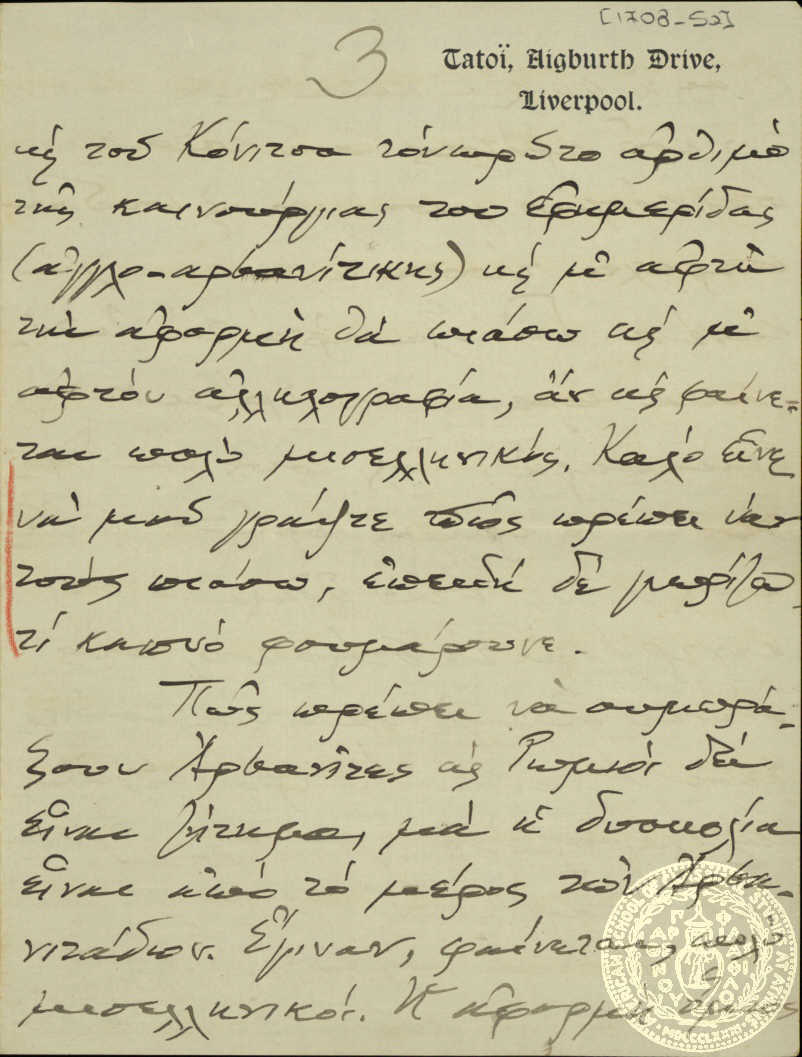 [1708-52]
3
Tatoï, Aigburth Drive,
Liverpool.
κὶ τοῦ Κόνιτσα τὸν πρῶτο ἀρθιμὸ
τῆς καινούργιας του Ἐφημερίδας
(ἀγγλο-αρβανίτικης) κὶ μὲ ἀφτὴ
τὴν ἀφορμὴ θὰ πιάσω κὶ μὲ
ἀφτόν ἀλληλογραφία, ἂν κὶ φαίνε-
ται πολὺ μισελληνικός. Καλὸ εἶνε
νὰ μοῦ γράψτε πῶς πρέπει νὰν
τοὺς πιάσω, ἐπειδὴ δὲ
τί καπνὸ φουμάρουνε.
Πῶς πρέπει νὰ συμπρά-
ξουν Ἀρβανίτες κὶ Ρωμιοὶ δὲν
εἶναι ζήτημα, μὰ ἡ δυσκολία
εἶναι ἀπὸ τὸ μέρος τῶν Ἀρβα-
νιτάδων. Ἔγιναν, φαίνεται, πολὺ
μισελληνικοί. Ἡ ἀφορμὴ